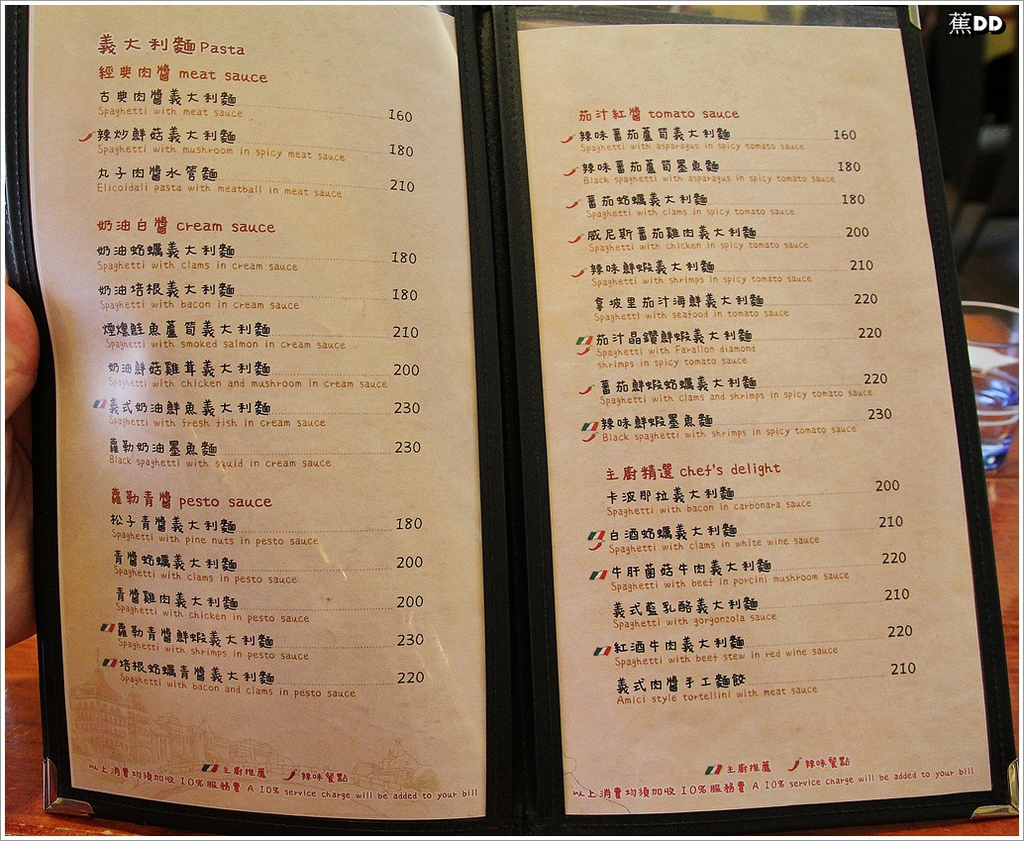 蕉DD
義大利麵 Pasta
經典肉醬 meat sauce
古典肉醬義大利麵 160
Spaghetti with meat sauce
辣炒鮮菇義大利麵 180
Spaghetti with mushroom in spicy meat sauce
丸子肉醬水管麵 210
Elicoidali pasta with meatball in meat sauce
奶油白醬 cream sauce
奶油蛤蠣義大利麵 180
Spaghetti with clams in cream sauce
奶油培根義大利麵 180
Spaghetti with bacon in cream sauce
煙燻鮭魚蘆筍義大利麵 210
Spaghetti with smoked salmon in cream sauce
奶油鮮菇雞茸義大利麵 200
Spaghetti with chicken and mushroom in cream sauce
義式奶油鮮魚義大利麵 230
Spaghetti with fresh fish in cream sauce
蘿勒奶油墨魚麵 230
Black spaghetti with squid in cream sauce
蘿勒青醬 pesto sauce
松子青醬義大利麵 180
Spaghetti with pine nuts in pesto sauce
青醬蛤蠣義大利麵 200
Spaghetti with clams in pesto sauce
青醬雞肉義大利麵 200
Spaghetti with chicken in pesto sauce
蘿勒青醬鮮蝦義大利麵 230
Spaghetti with shrimps in pesto sauce
培根蛤蠣青醬義大利麵 220
Spaghetti with bacon and clams in pesto sauce
主廚推薦 辣味餐點
以上消費均須加收 10%服務費 A 10% service charge will be added to your bill
茄汁紅醬 tomato sauce
辣味蕃茄蘆筍義大利麵 160
Spaghetti with asparagus in spicy tomato sauce
辣味蕃茄蘆筍墨魚麵 180
Black spaghetti with asparagus in spicy tomato sauce
蕃茄蛤蠣義大利麵 180
Spaghetti with clams in spicy tomato sauce
威尼斯蕃茄雞肉義大利麵 200
Spaghetti with chicken in spicy tomato sauce
辣味鮮蝦義大利麵 210
Spaghetti with shrimps in spicy tomato sauce
拿坡里茄汁海鮮義大利麵 220
Spaghetti with seafood in tomato sauce
茄汁晶鑽鮮蝦義大利麵 220
Spaghetti with Farallon diamond
shrimps in spicy tomato sauce
蕃茄鮮蝦蛤蠣義大利麵 220
Spaghetti with clams and shrimps in spicy tomato sauce
辣味鮮蝦墨魚麵 230
Black spaghetti with shrimps in spicy tomato sauce
主廚精選 chef's delight
卡波那拉義大利麵 200
Spaghetti with bacon in carbonara sauce
白酒蛤蠣義大利麵 210
Spaghetti with clams in white wine sauce
牛肝菌菇牛肉義大利麵 220
Spaghetti with beef in porcini mushroom sauce
義式藍乳酪義大利麵 210
Spaghetti with gorgonzola sauce
紅酒牛肉義大利麵 220
Spaghetti with beef stew in red wine sauce
義式肉醬手工麵餃 210
Amici style tortellini with meat sauce
主廚推薦 辣味餐點
以上消費均須加收 10%服務費 A 10% service charge will be added to your bill